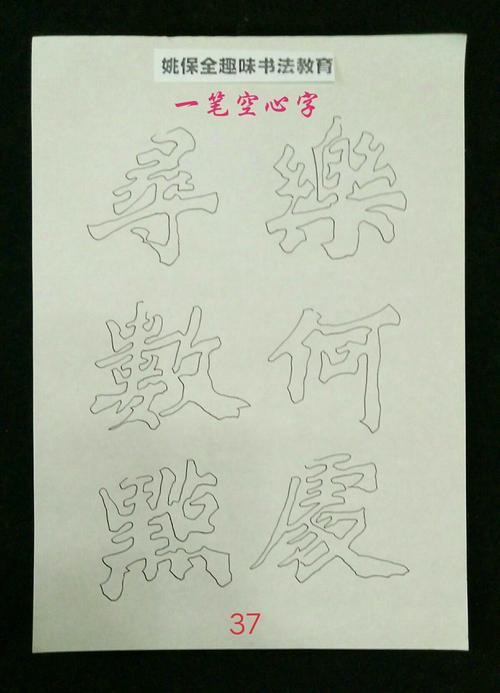 姚保全趣味书法教育
一笔空心字
樂何處
尋數點
37